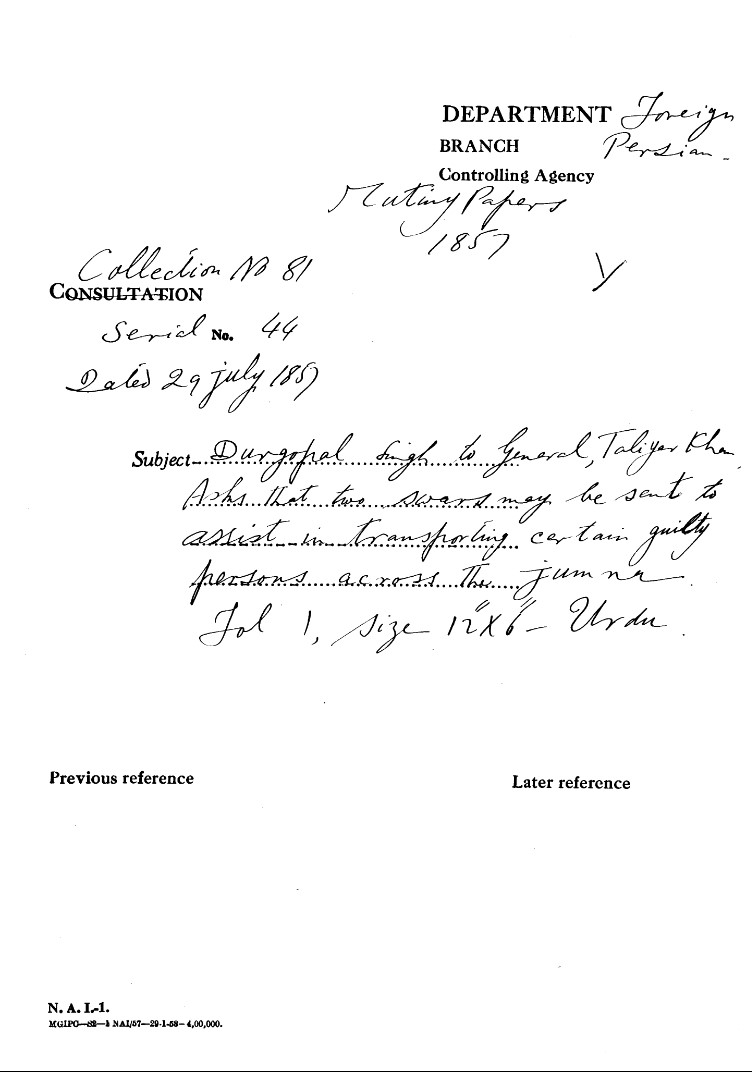 DEPARTMENT Foreign
BRANCH Persian -
Controlling Agency
Mutiny Papers
1857
Collection No 81
CONSULTATION
Serial No. 44
Dated 29 July 1857
Subject Durgopal Singh to General, Taliyar Khan
Asks that two swars may be sent to
assist in transporting certain guilty
persons across the Jumna
Fol 1, size 12"X6" - Urdu.
Previous reference Later reference
N. A. I.-1.
MGIPC—S2—1 NAI/57—29-1-58—4,00,000.